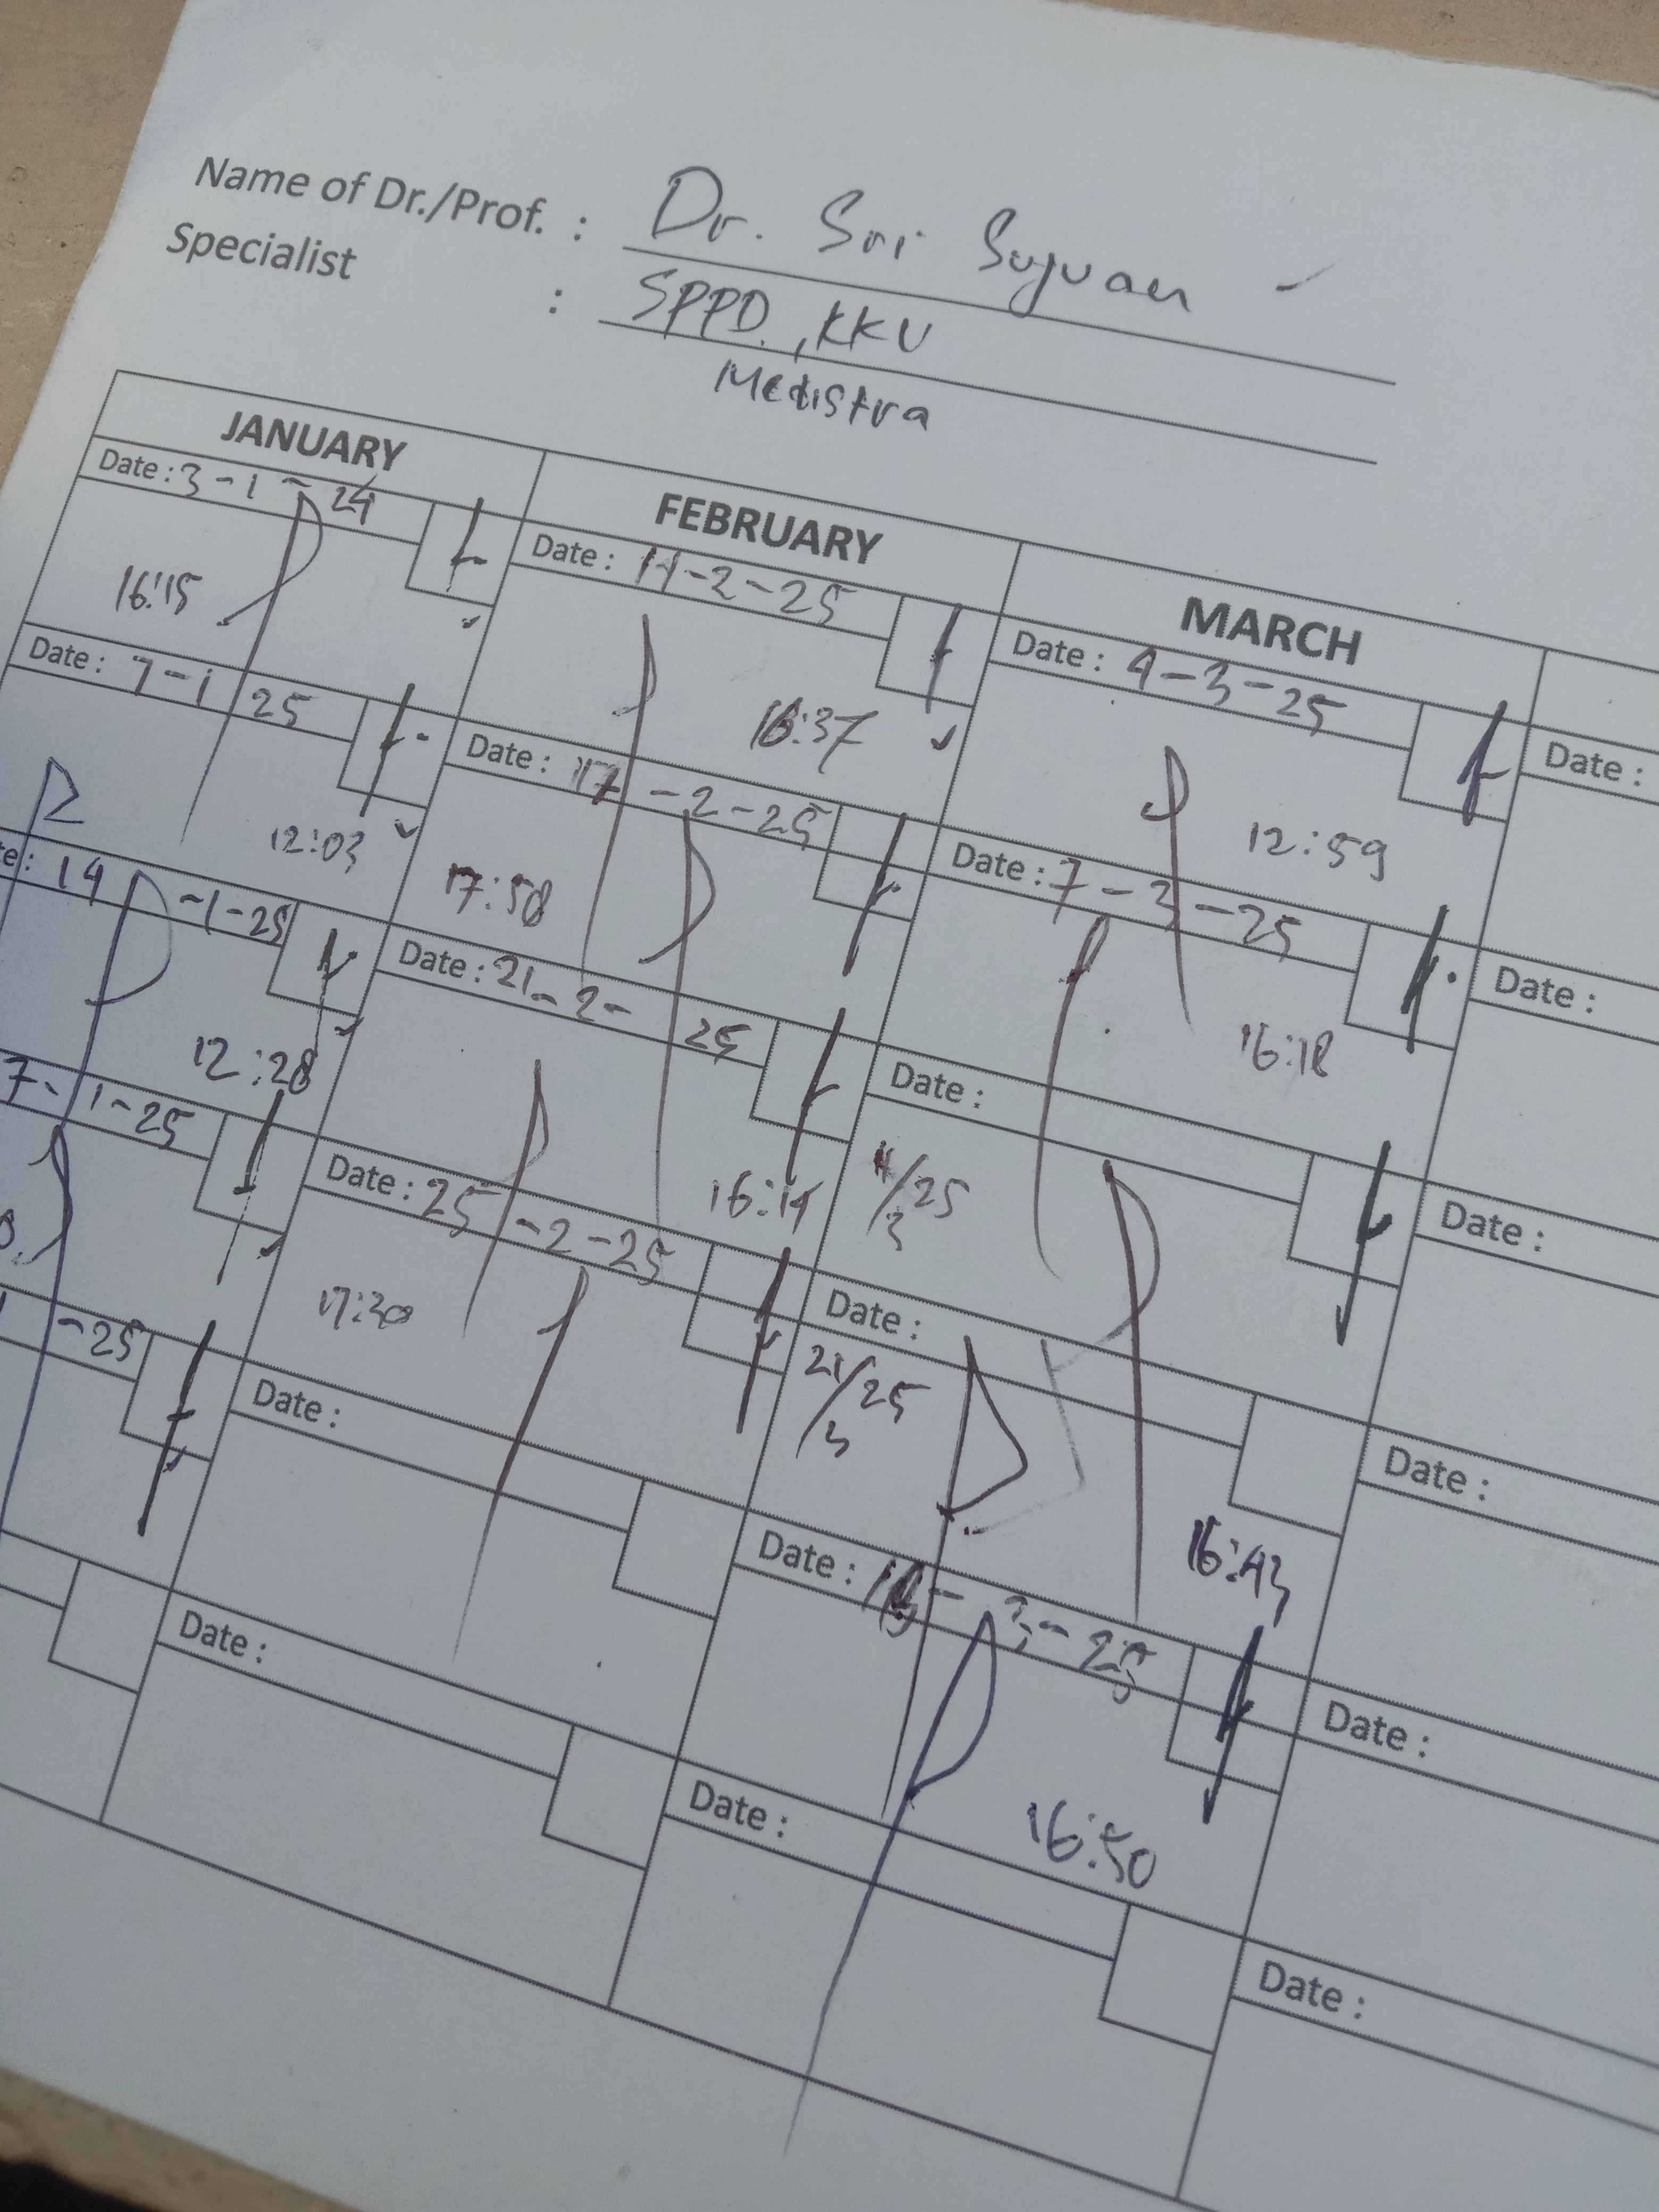 Name of Dr./Prof. : Dr. Sri Suyuan -
Specialist : SPPD, KKV
Medistra
JANUARY
Date : 3 - 1 - 24
16:15
Date : 7 - 1 25
12:03
te: 14 -1-25
12:28
7-1-25
-25
FEBRUARY
Date : 11-2-25
16:37
Date : 17 -2-25
17:58
Date : 21-2- 25
16:14
Date : 25 -2-25
17:30
Date :
Date :
MARCH
Date : 4-3-25
12:59
Date : 7-3-25
16:18
Date :
11/25
3
Date :
21/25
3
16:43
Date : - 3-25
16:50
Date :
Date :
Date :
Date :
Date :
Date :
Date :